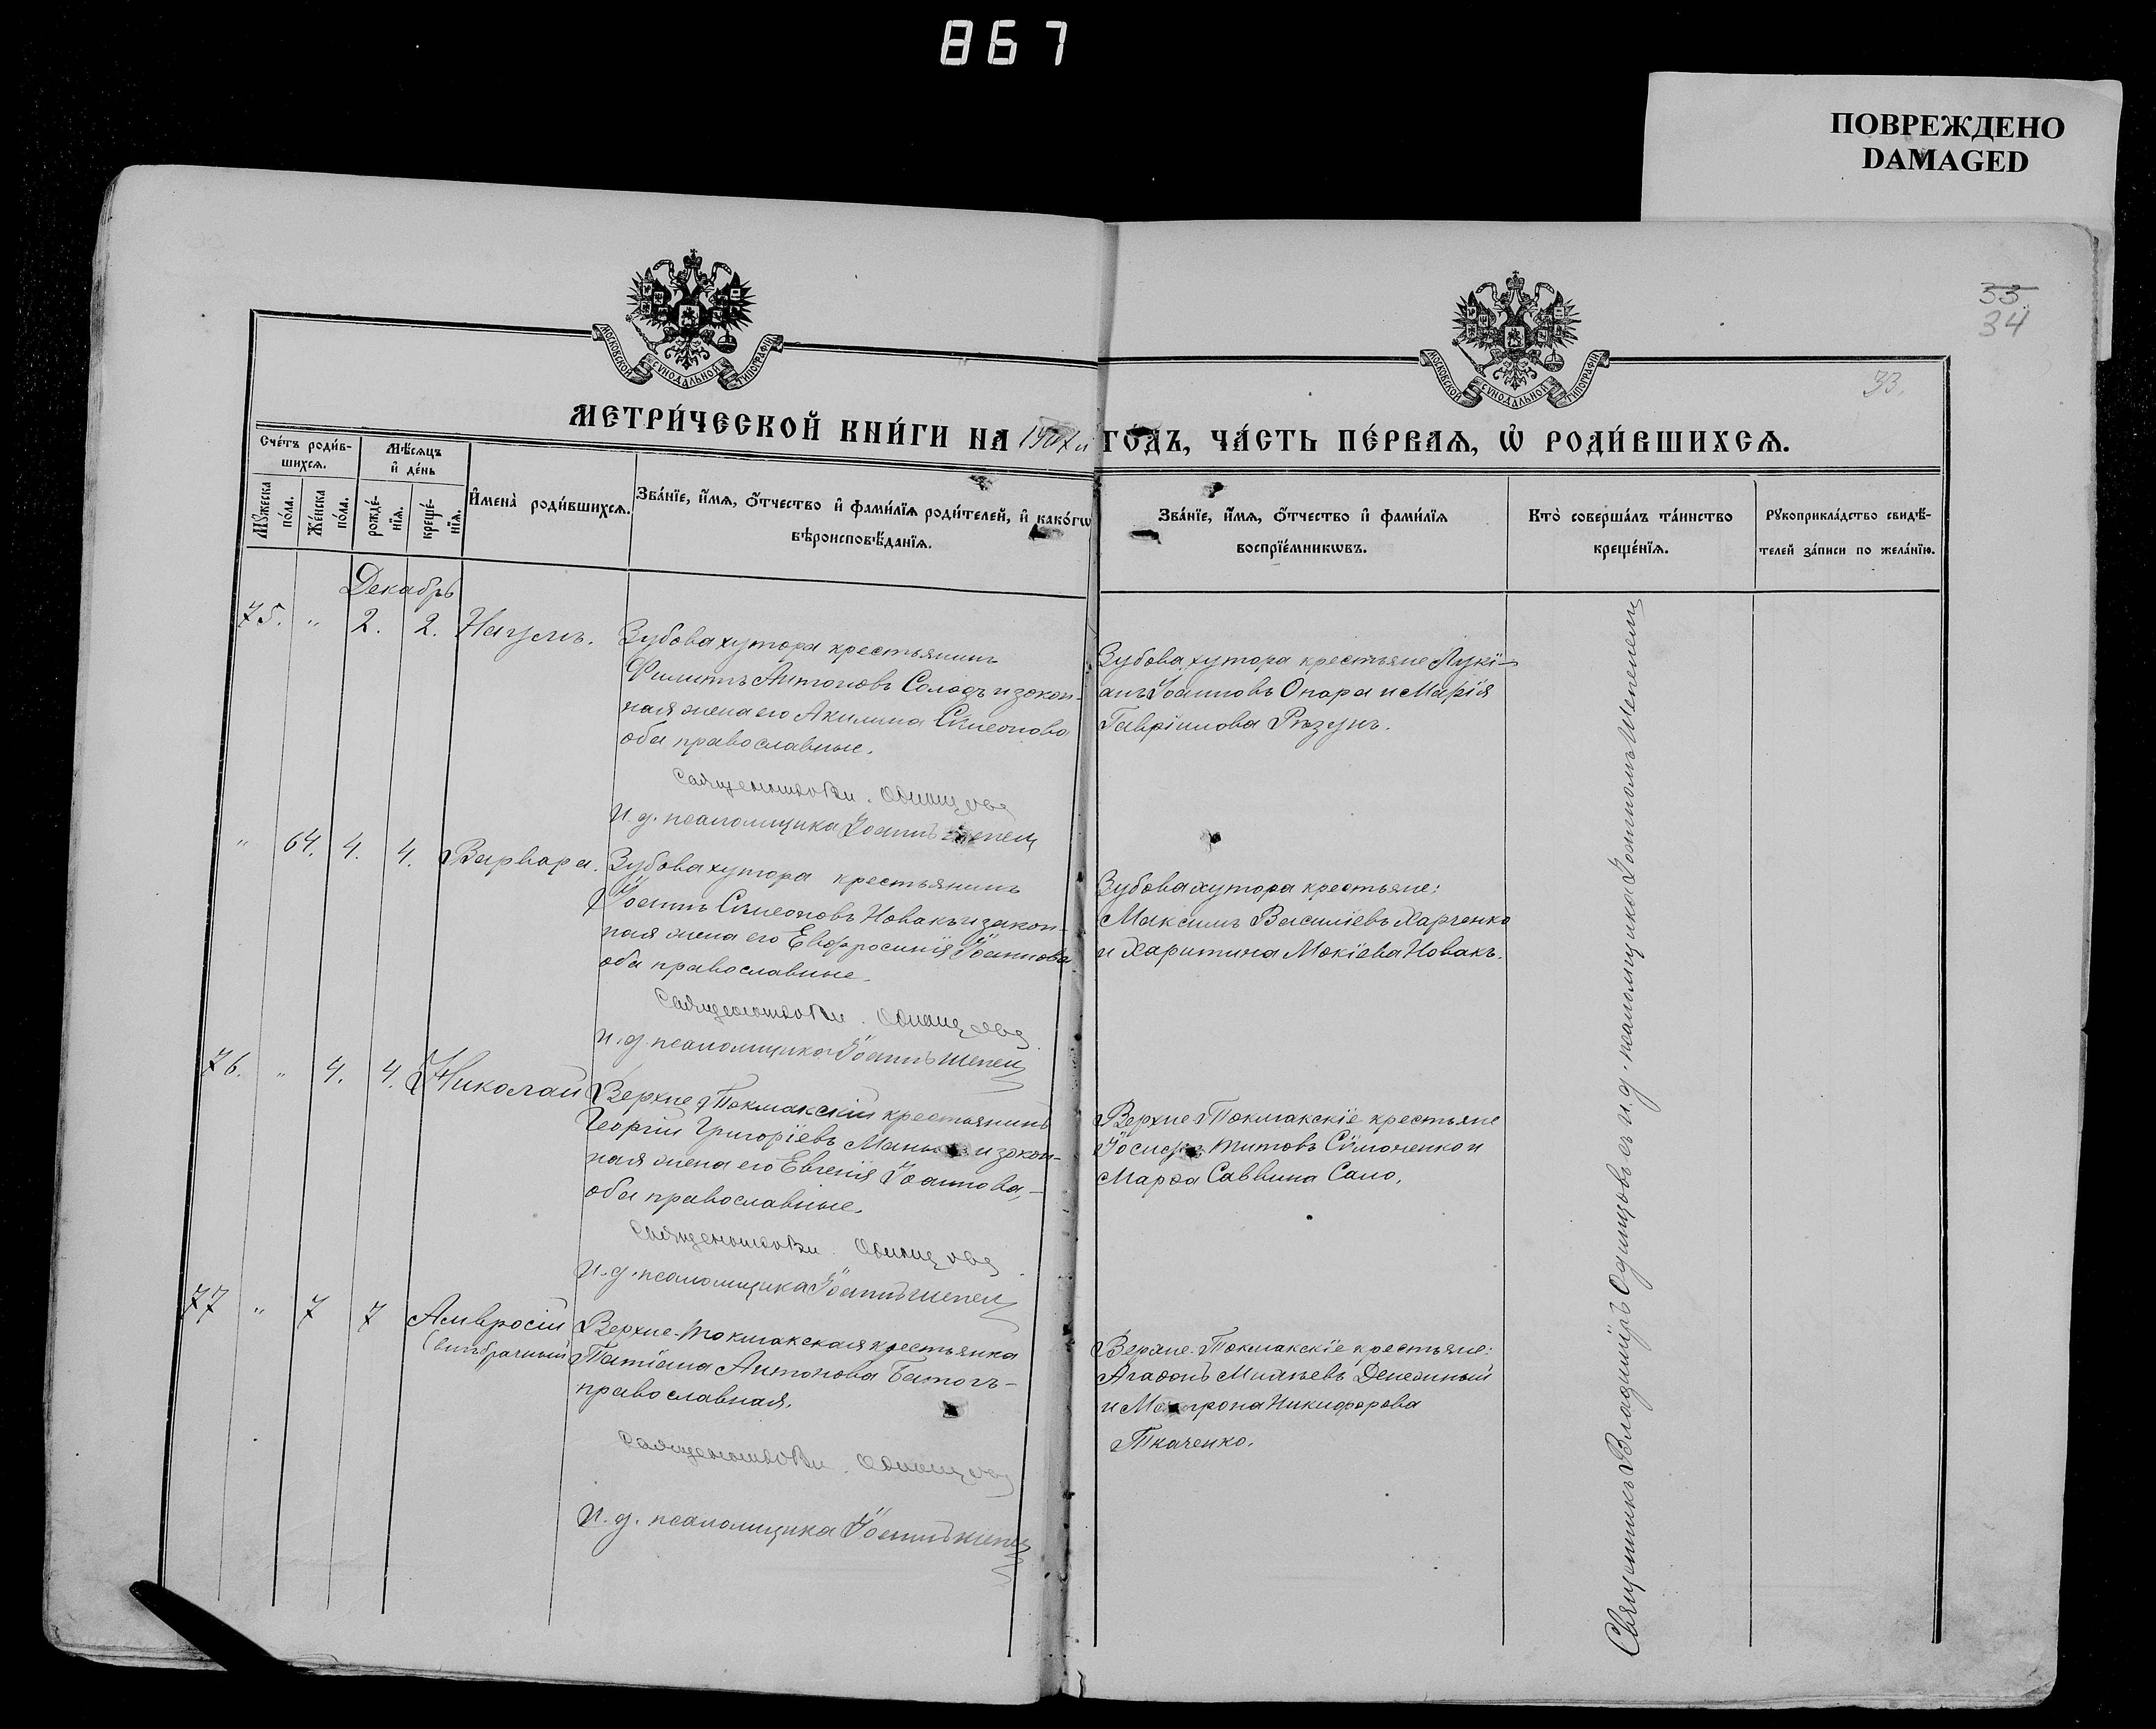 867
ПОВРЕЖДЕНО
DAMAGED
33.
34
33.
МОСКОВСКОЙ СѴНОДАЛЬНОЙ ТИПОГРАФІИ
МОСКОВСКОЙ СѴНОДАЛЬНОЙ ТИПОГРАФІИ
МЕТРИ́ЧЕСКОЙ КНИ́ГИ НА
ГО́ДЪ, ЧА́СТЬ ПЕ́РВАѦ, Ѽ РОДИ́ВШИХСѦ.
Сче́тъ роди́в-
шихсѧ.
Мꙋ́жеска
по́ла.
Же́нска
по́ла.
Мѣ́сѧцъ
и҆ де́нь
рожде́-
нїѧ.
креще́-
нїѧ.
И҆мена̀ роди́вшихсѧ.
Зва́нїе, и҆́мѧ, ѻ҆́тчество и҆ фами́лїѧ роди́телей, и҆ како́гѡ
вѣроисповѣ́данїѧ.
Зва́нїе, и҆́мѧ, ѻ҆́тчество и҆ фами́лїѧ
воспрїе́мникѡвъ.
Кто̀ соверша́лъ та́инство
креще́нїѧ.
Рꙋкоприкла́дство свидѣ́-
телей за́писи по жела́нїю.
Декабрь
75. " 2. 2. Наумъ.
Зубова хутора крестьянинъ
Филиппъ Антоновъ Солодъ и закон-
ная жена его Акилина Сѵмеонова
оба православные.
Священникъ В. Одинцовъ
И. д. псаломщика Іоаннъ Шепель
Зубова хутора крестьяне Лукі-
анъ Іоанновъ Опара и Марія
Гавріилова Рѣзунъ.
" 64. 4. 4. Варвара.
Зубова хутора крестьянинъ
Іоаннъ Сѵмеоновъ Новакъ и закон-
ная жена его Евфросинія Іоаннова
оба православные.
Священникъ В. Одинцовъ
И. д. псаломщика Іоаннъ Шепель
Зубова хутора крестьяне:
Максимъ Василіевъ Харченко
и Харитина Мокіева Новакъ.
76. " 4. 4. Николай
Верхне-Токмакскій крестьянинъ
Георгій Григоріевъ и закон-
ная жена его Евгенія Іоаннова,
оба православные.
Священникъ В. Одинцовъ
И. д. псаломщика Іоаннъ Шепель
Верхне-Токмакскіе крестьяне
Іосифъ Титовъ Сѵмоненко и
Марѳа Саввина Сало.
77 " 7 7 Амвросій
(внѣбрачный)
Верхне-Токмакская крестьянка
Татіана Антонова Батогъ-
православная.
Священникъ В. Одинцовъ
И. д. псаломщика Іоаннъ Шепель
Верхне-Токмакскіе крестьяне:
Агаѳонъ
и Матрона Никифорова
Ткаченко.
Священникъ Владиміръ Одинцовъ съ и. д. псаломщика Іоанномъ Шепелемъ